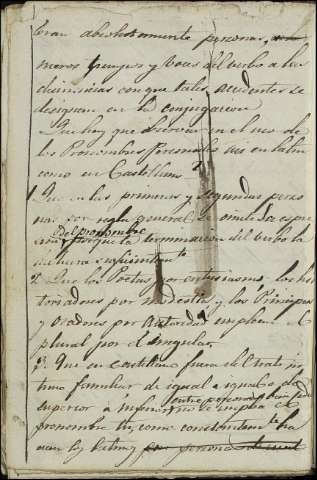 seran absolutamente personas,
meros tiempos y voces del verbo a las
con que tales accidentes se
designan en la conjugacion
Que hay que observar en el uso de
los Pronombres Personales asi en latin
como en Castellano?
1 Que en las primeras y segundas perso
nas por regla general se omite la
del pronombre
porque la terminacion del verbo la
2. Que los Poetas por entusiasmo, los his
toriadores por modestia, y los Principes
y Oradores por Autoridad emplean el
plural por el singular.
3. Que en castellano fuera del trato in
timo familiar de igual a igual o de
superior à inferior no se emplea el
pronombre tu, como constantemte ha
cian los latinos